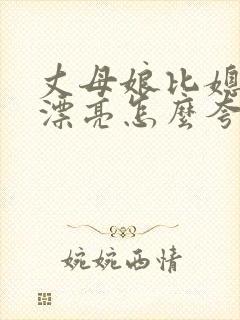 丈母娘比媳
漂亮怎麼夸
婉婉西情